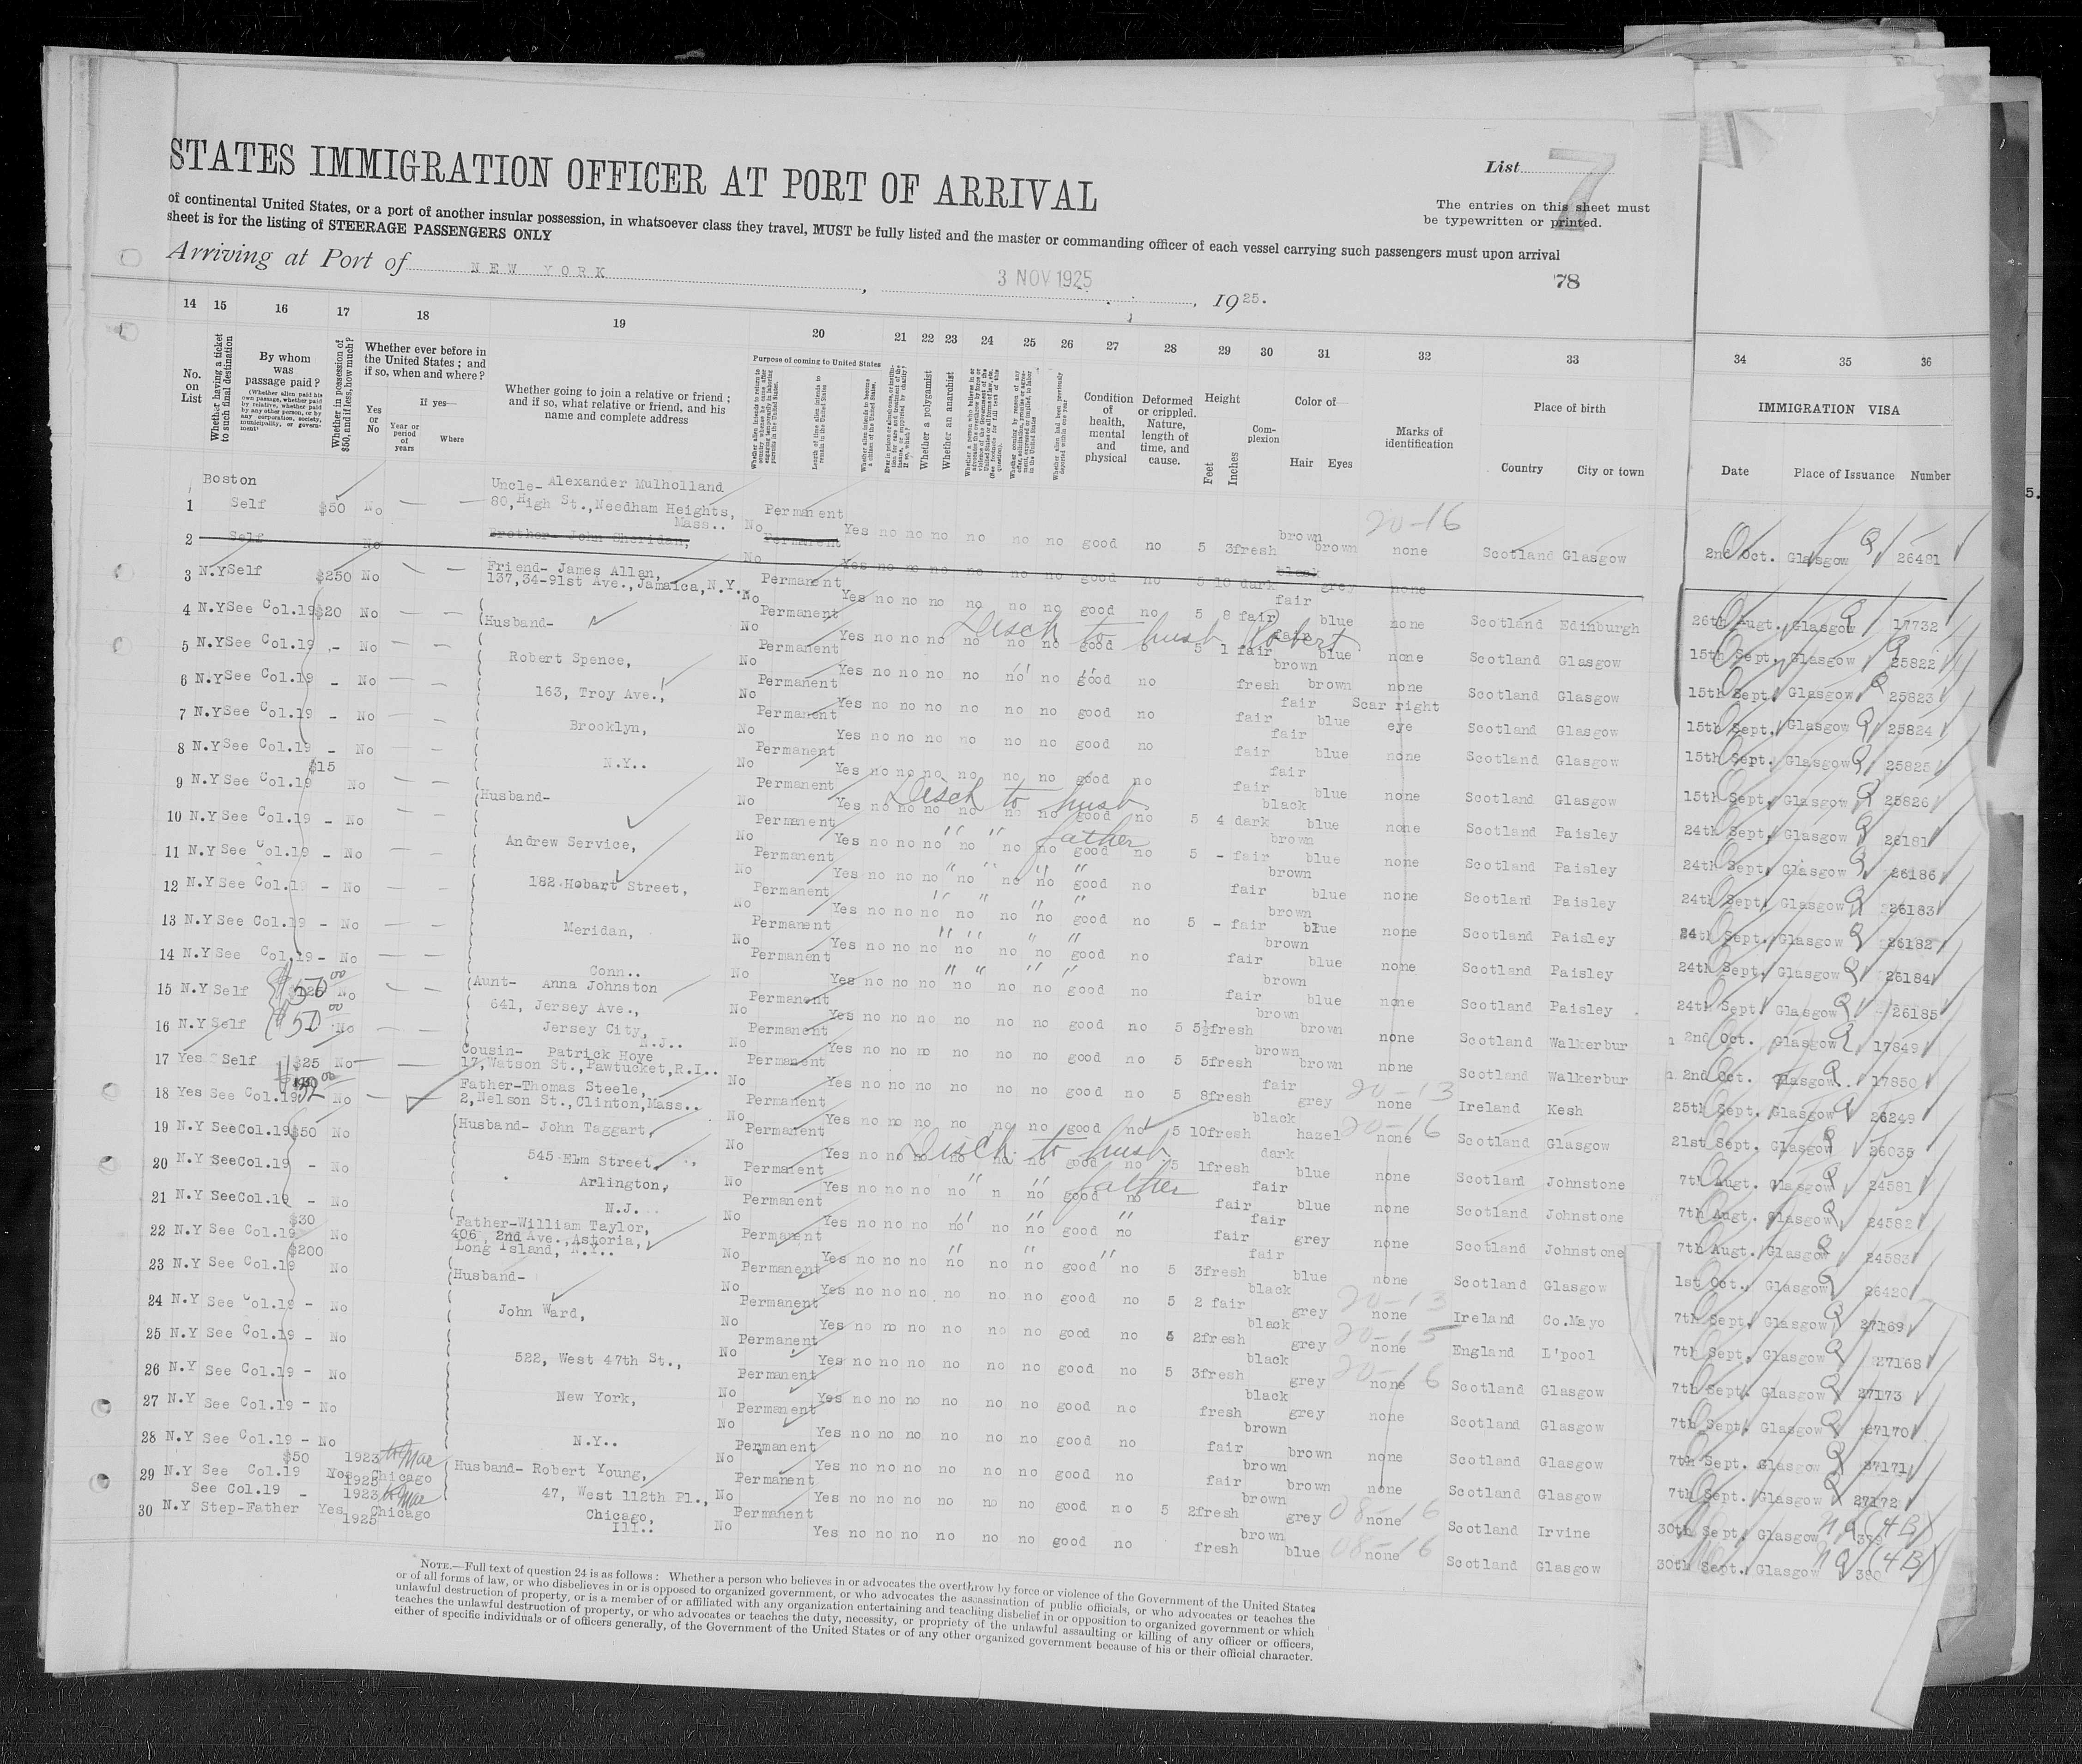 STATES IMMIGRATION OFFICER AT PORT OF ARRIVAL
List 7
The entries on this sheet must
be typewritten or printed.
of continental United States, or a port of another insular possession, in whatsoever class they travel, MUST be fully listed and the master or commanding officer of each vessel carrying such passengers must upon arrival
sheet is for the listing of STEERAGE PASSENGERS ONLY
Arriving at Port of NEW YORK, 3 NOV 1925, 1925.
78
14 15 16 17 18 19 20 21 22 23 24 25 26 27 28 29 30 31 32 33 34 35 36
No. on List
Whether having a ticket to such final destination
By whom was passage paid?
Whether in possession of $50, and if less, how much?
Whether ever before in the United States; and if so, when and where?
Yes or No
If yes—
Year or period of years
Where
Whether going to join a relative or friend; and if so, what relative or friend, and his name and complete address
Purpose of coming to United States
Length of time alien intends to remain in the United States
Whether a polygamist
Whether an anarchist
Condition of health, mental and physical
Deformed or crippled. Nature, length of time, and cause.
Height
Feet Inches
Complexion
Color of—
Hair Eyes
Marks of identification
Place of birth
Country City or town
IMMIGRATION VISA
Date Place of Issuance Number
1 Boston Self $50 No — — Uncle- Alexander Mulholland 80, High St., Needham Heights, Mass.. No Permanent Yes no no no no no no good no 5 3 fresh brown brown 20-16 none Scotland Glasgow 2nd Oct. Glasgow 26481
2 Self No Brother- John Sheridan, No Permanent Yes no no no no no no good no 5 10 dark black grey none
3 N.Y Self $250 No — — Friend- James Allan, 137,34-91st Ave., Jamaica, N.Y. No Permanent Yes no no no no no no good no 5 8 fair fair blue none Scotland Edinburgh 26th Augt. Glasgow 17732
4 N.Y See Col.19 $20 No — — Husband- No Permanent Yes no no no no no no good 5 1 fair fair blue none Scotland Glasgow 15th Sept. Glasgow 25822
Disch to husb Robert
5 N.Y See Col.19 - No — — Robert Spence, No Permanent Yes no no no no no no good no fresh brown brown none Scotland Glasgow 15th Sept. Glasgow 25823
6 N.Y See Col.19 - No — — 163, Troy Ave., No Permanent Yes no no no no no no good no fair fair blue Scar right eye Scotland Glasgow 15th Sept. Glasgow 25824
7 N.Y See Col.19 - No — — Brooklyn, No Permanent Yes no no no no no no good no fair fair blue none Scotland Glasgow 15th Sept. Glasgow 25825
8 N.Y See Col.19 - No — — N.Y.. No Permanent Yes no no no no no no good no fair fair blue none Scotland Glasgow 15th Sept. Glasgow 25826
9 N.Y See Col.19 $15 No — — Husband- No Permanent Yes no no no no no no good no 5 4 dark black blue none Scotland Paisley 24th Sept. Glasgow 26181
Disch to husb
10 N.Y See Col.19 - No — — Andrew Service, No Permanent Yes no no no no no no good no 5 - fair brown blue none Scotland Paisley 24th Sept. Glasgow 26186
" " father
11 N.Y See Col.19 - No — — 182 Hobart Street, No Permanent Yes no no no no no no good no fair brown blue none Scotland Paisley 24th Sept. Glasgow 26183
12 N.Y See Col.1 - No — — Meridan, No Permanent Yes no no no no no no good no 5 - fair brown blue none Scotland Paisley 24th Sept. Glasgow 26182
13 N.Y See Col.19 - No — — Conn.. No Permanent Yes no no no no no no good no fair brown blue none Scotland Paisley 24th Sept. Glasgow 26184
14 N.Y See Col.19 - No — — No Permanent Yes no no no no no no good no fair brown blue none Scotland Paisley 24th Sept. Glasgow 26185
15 N.Y Self $50 00 No — — Aunt- Anna Johnston 641, Jersey Ave., No Permanent Yes no no no no no no good no 5 5½ fresh brown brown none Scotland Walkerbur 2nd Oct. Glasgow 17849
16 N.Y Self $50 00 No — — Jersey City, N.J.. No Permanent Yes no no no no no no good no 5 5 fresh brown brown none Scotland Walkerbur 2nd Oct. Glasgow 17850
17 Yes Self $25 No — — Cousin- Patrick Hoye 17, Watson St., Pawtucket, R.I.. No Permanent Yes no no no no no no good no 5 8 fresh fair grey 20-13 none Ireland Kesh 25th Sept. Glasgow 26249
18 Yes See Col.19 No — Father-Thomas Steele, 2, Nelson St., Clinton, Mass.. No Permanent Yes no no no no no no good no 5 10 fresh black hazel 20-16 none Scotland Glasgow 21st Sept. Glasgow 26035
19 N.Y SeeCol.19 $50 No Husband- John Taggart, No Permanent Yes no no no no no no good no 5 1 fresh dark blue none Scotland Johnstone 7th Augt. Glasgow 24581
Disch to husb
20 N.Y SeeCol.19 - No 545 Elm Street, No Permanent Yes no no no no n no good no fair fair blue none Scotland Johnstone 7th Augt. Glasgow 24582
" " father
21 N.Y SeeCol.19 - No Arlington, N.J. No Permanent Yes no no no no no no good no fair fair grey none Scotland Johnstone 7th Augt. Glasgow 24583
22 N.Y See Col.19 $30 No Father-William Taylor, 406, 2nd Ave., Astoria, Long Island, N.Y.. No Permanent Yes no no no no no no good no 5 3 fresh fair blue none Scotland Glasgow 1st Oct. Glasgow 26420
23 N.Y See Col.19 $200 No Husband- No Permanent Yes no no no no no no good no 5 2 fair black grey 20-13 none Ireland Co.Mayo 7th Sept. Glasgow 27169
24 N.Y See Col.19 - No John Ward, No Permanent Yes no no no no no no good no 5 2 fresh black grey 20-15 none England L'pool 7th Sept. Glasgow 27168
25 N.Y See Col.19 - No 522, West 47th St., No Permanent Yes no no no no no no good no 5 3 fresh black grey 20-16 none Scotland Glasgow 7th Sept. Glasgow 27173
26 N.Y See Col.19 - No New York, No Permanent Yes no no no no no no good no fresh black grey none Scotland Glasgow 7th Sept. Glasgow 27170
27 N.Y See Col.19 - No N.Y.. No Permanent Yes no no no no no no good no fair brown brown none Scotland Glasgow 7th Sept. Glasgow 27171
28 N.Y See Col.19 - No No Permanent Yes no no no no no no good no fair brown brown none Scotland Glasgow 7th Sept. Glasgow 27172
29 N.Y See Col.19 $50 Yes 1923 1925 Chicago Husband- Robert Young, 47, West 112th Pl., No Permanent Yes no no no no no no good no 5 2 fresh brown grey 08-16 none Scotland Irvine 30th Sept. Glasgow 379 (4B)
30 N.Y See Col.19 - Step-Father Yes 1923 1925 Chicago Chicago, Ill.. No Permanent Yes no no no no no no good no fresh brown blue 08-16 none Scotland Glasgow 30th Sept. Glasgow 380 (4B)
NOTE.—Full text of question 24 is as follows: Whether a person who believes in or advocates the overthrow by force or violence of the Government of the United States
or of all forms of law, or who disbelieves in or is opposed to organized government, or who advocates the assassination of public officials, or who advocates or teaches the
unlawful destruction of property, or is a member of or affiliated with any organization entertaining and teaching disbelief in or opposition to organized government or which
teaches the unlawful destruction of property, or who advocates or teaches the duty, necessity, or propriety of the unlawful assaulting or killing of any officer or officers,
either of specific individuals or of officers generally, of the Government of the United States or of any other organized government because of his or their official character.